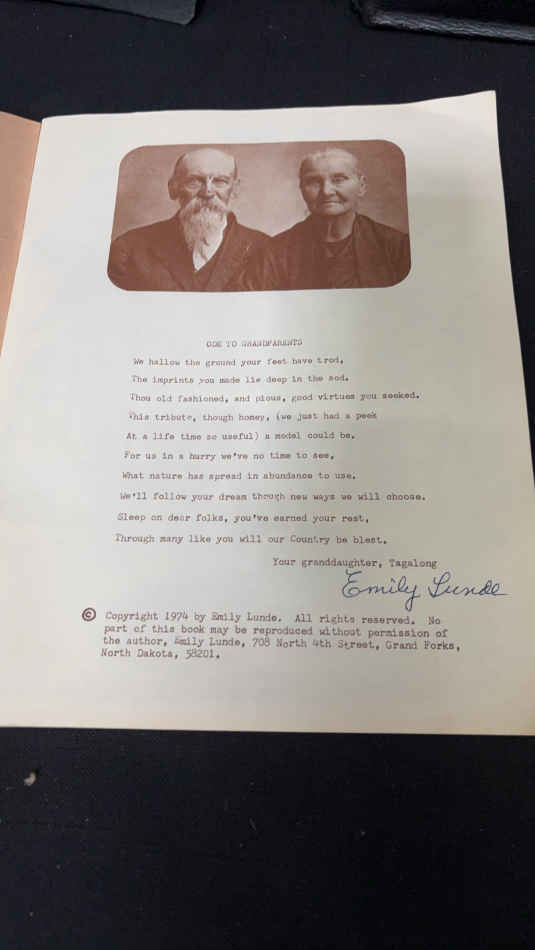 ODE TO GRANDPARENTS
We hallow the ground your feet have trod,
The imprints you made lie deep in the sod.
Thou old fashioned, and pious, good virtues you seeked.
This tribute, though homey, (we just had a peek
At a life time so useful) a model could be.
For us in a hurry we've no time to see,
What nature has spread in abundance to use.
We'll follow your dream through new ways we will choose.
Sleep on dear folks, you've earned your rest,
Through many like you will our Country be blest.
Your granddaughter, Tagalong
Emily Lunde
© Copyright 1974 by Emily Lunde. All rights reserved. No
part of this book may be reproduced without permission of
the author, Emily Lunde, 708 North 4th Street, Grand Forks,
North Dakota, 58201.